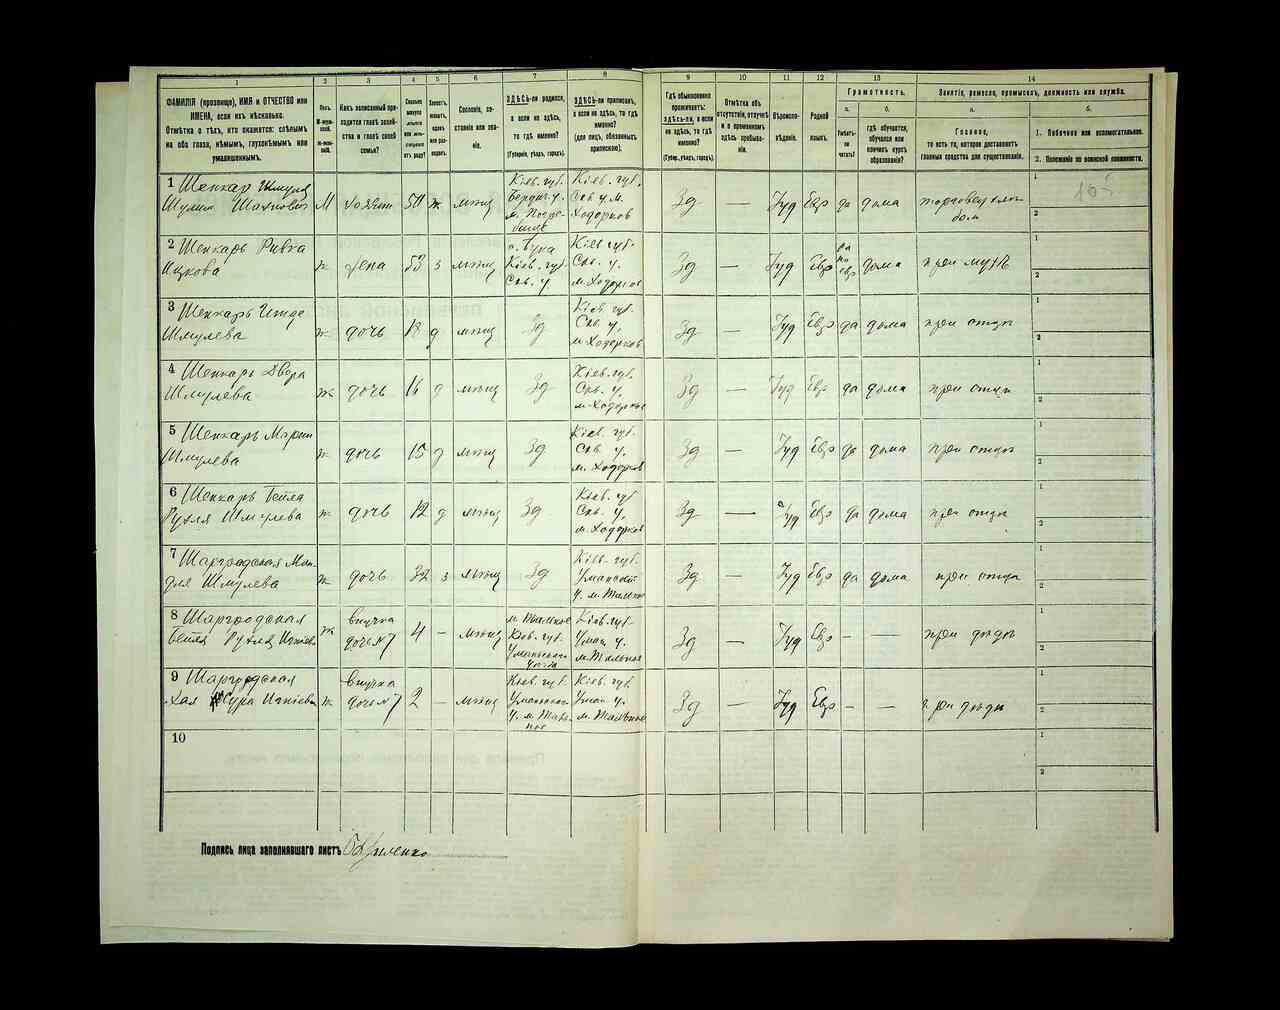 1 2 3 4 5 6 7 8 9 10 11 12 13 14
ФАМИЛІЯ (прозвище), ИМЯ и ОТЧЕСТВО или
ИМЕНА, если ихъ нѣсколько.
Отмѣтка о тѣхъ, кто окажется: слѣпымъ
на оба глаза, нѣмымъ, глухонѣмымъ или
умалишеннымъ.
Полъ.
М-мужской.
Ж-женскій.
Какъ записанный при-
ходится главѣ хозяй-
ства и главѣ своей
семьи?
Сколько
минуло
лѣтъ
отъ роду?
Холостъ,
женатъ,
вдовъ
или раз-
веденъ.
Сословіе, со-
стояніе или зва-
ніе.
ЗДѢСЬ-ли родился,
а если не здѣсь,
то гдѣ именно?
(Губернія, уѣздъ, городъ).
ЗДѢСЬ-ли приписанъ,
а если не здѣсь, то гдѣ
именно?
(для лицъ, обязанныхъ
припискою).
Гдѣ обыкновенно
проживаетъ:
здѣсь-ли, а если
не здѣсь, то гдѣ
именно?
(Губер., уѣздъ, городъ).
Отмѣтка объ
отсутствіи, отлучкѣ
и о временномъ
здѣсь пребыва-
ніи.
Вѣроиспо-
вѣданіе.
Родной
языкъ.
Грамотность.
а.
Умѣетъ-
ли
читать?
б.
гдѣ обучается,
обучался или
кончилъ курсъ
образованія?
Занятіе, ремесло, промыселъ, должность или служба.
а.
Главное,
то есть то, которое доставляетъ
главныя средства для существованія.
б.
1. Побочное или вспомогательное.
2. Положеніе по воинской повинности.
1 Шенкар Шмуль
Шулим М хозяин 50 ж мѣщ
Кіев. губ.
Бердич. у.
Кіев. губ.
Скв у м.
Ходорков
Зд — Іуд Евр да дома
2 Шенкарь Ривка
Ицкова ж жена 53 з мѣщ
Кіев. губ.
Скв. у
Кіев губ.
Скв. у.
м. Ходорков
Зд — Іуд Евр да по евр дома при мужѣ
3 Шенкарь
Шмулева ж дочь 18 д мѣщ Зд
Кіев губ.
Скв. у.
м. Ходорков
Зд — Іуд Евр да дома при отцѣ
4 Шенкарь Двора
Шмулева ж дочь 16 д мѣщ Зд
Кіев. губ.
Скв. у.
м. Ходорков
Зд — Іуд Евр да дома при отцѣ
5 Шенкарь Марим
Шмулева ж дочь 15 д мѣщ Зд
Кіев. губ.
Скв. у.
м. Ходорков
Зд — Іуд Евр да дома при отцѣ
6 Шенкарь Бейла
Рухля Шмулева ж дочь 12 д мѣщ Зд
Кіев. губ
Скв. у.
м. Ходорков
Зд — Іуд Евр да дома при отцѣ
7 Шаргродская
Шмулева ж дочь 32 з мѣщ Зд
Кіев. губ.
Уманской
у. м. Тальное
Зд — Іуд Евр да дома при отцѣ
8 Шаргродская
Бейла Рухля ж внучка дочь №7 4 — мѣщ
м. Тальное
Кіев. губ.
Уманскаго
уѣзда
Кіев. губ.
Уман у.
м. Тальное
Зд — Іуд Евр — — при дѣдѣ
9 Шаргродская
Хая Сура ж внучка дочь №7 2 — мѣщ
Кіев. губ.
Уманской
у. м. Таль-
ное
Кіев. губ.
Уман у.
м. Тальное
Зд — Іуд Евр — — при дѣдѣ
10
Подпись лица заполнявшаго листъ